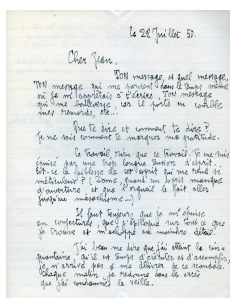 Le 22 Juillet 50.
Cher Jean,
TON message, et quel message,
TON message qui me parvient dans le temps même
où je m'apprêtais à t'écrire. TON message
qui me bouleverse, car il porte au comble
mes remords, etc...
Que te dire et comment te dire ?
Je ne sais comment te marquer ma gratitude.
Ce travail, rien que ce travail. Je me suis
épuisé par une trop longue tension d'esprit.
Est-ce la faiblesse de cet esprit qui me rend si
méticuleux ? (Dame, quand un esprit manque
d'ouverture et que l'orgueil le fait aller
jusqu'au masochisme...)
Il faut toujours que je m'épuise
en conjectures, que j'épilogue sur tout ce que
je trouve et m'achoppe au moindre détail.
J'ai beau me dire que j'ai atteint la cin-
quantaine, qu'il est temps d'exécuter et d'assembler,
je n'arrive pas à me délivrer de ce scandale.
Chaque matin je retombe dans les excès
que j'ai condamnés la veille.